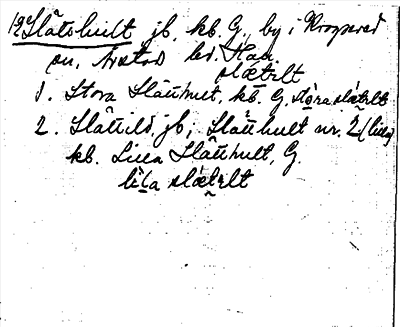 Slätshult jb, kb. G, by i Krogsered
sn, Årstad hd. Hall.
slætelt
1. Stora Slätthult, kb. G, stora slætelt
2. Slättild, jb; Slätthult nr. 2 (lilla)
kb. Lilla Slätthult, G.
lila slætelt